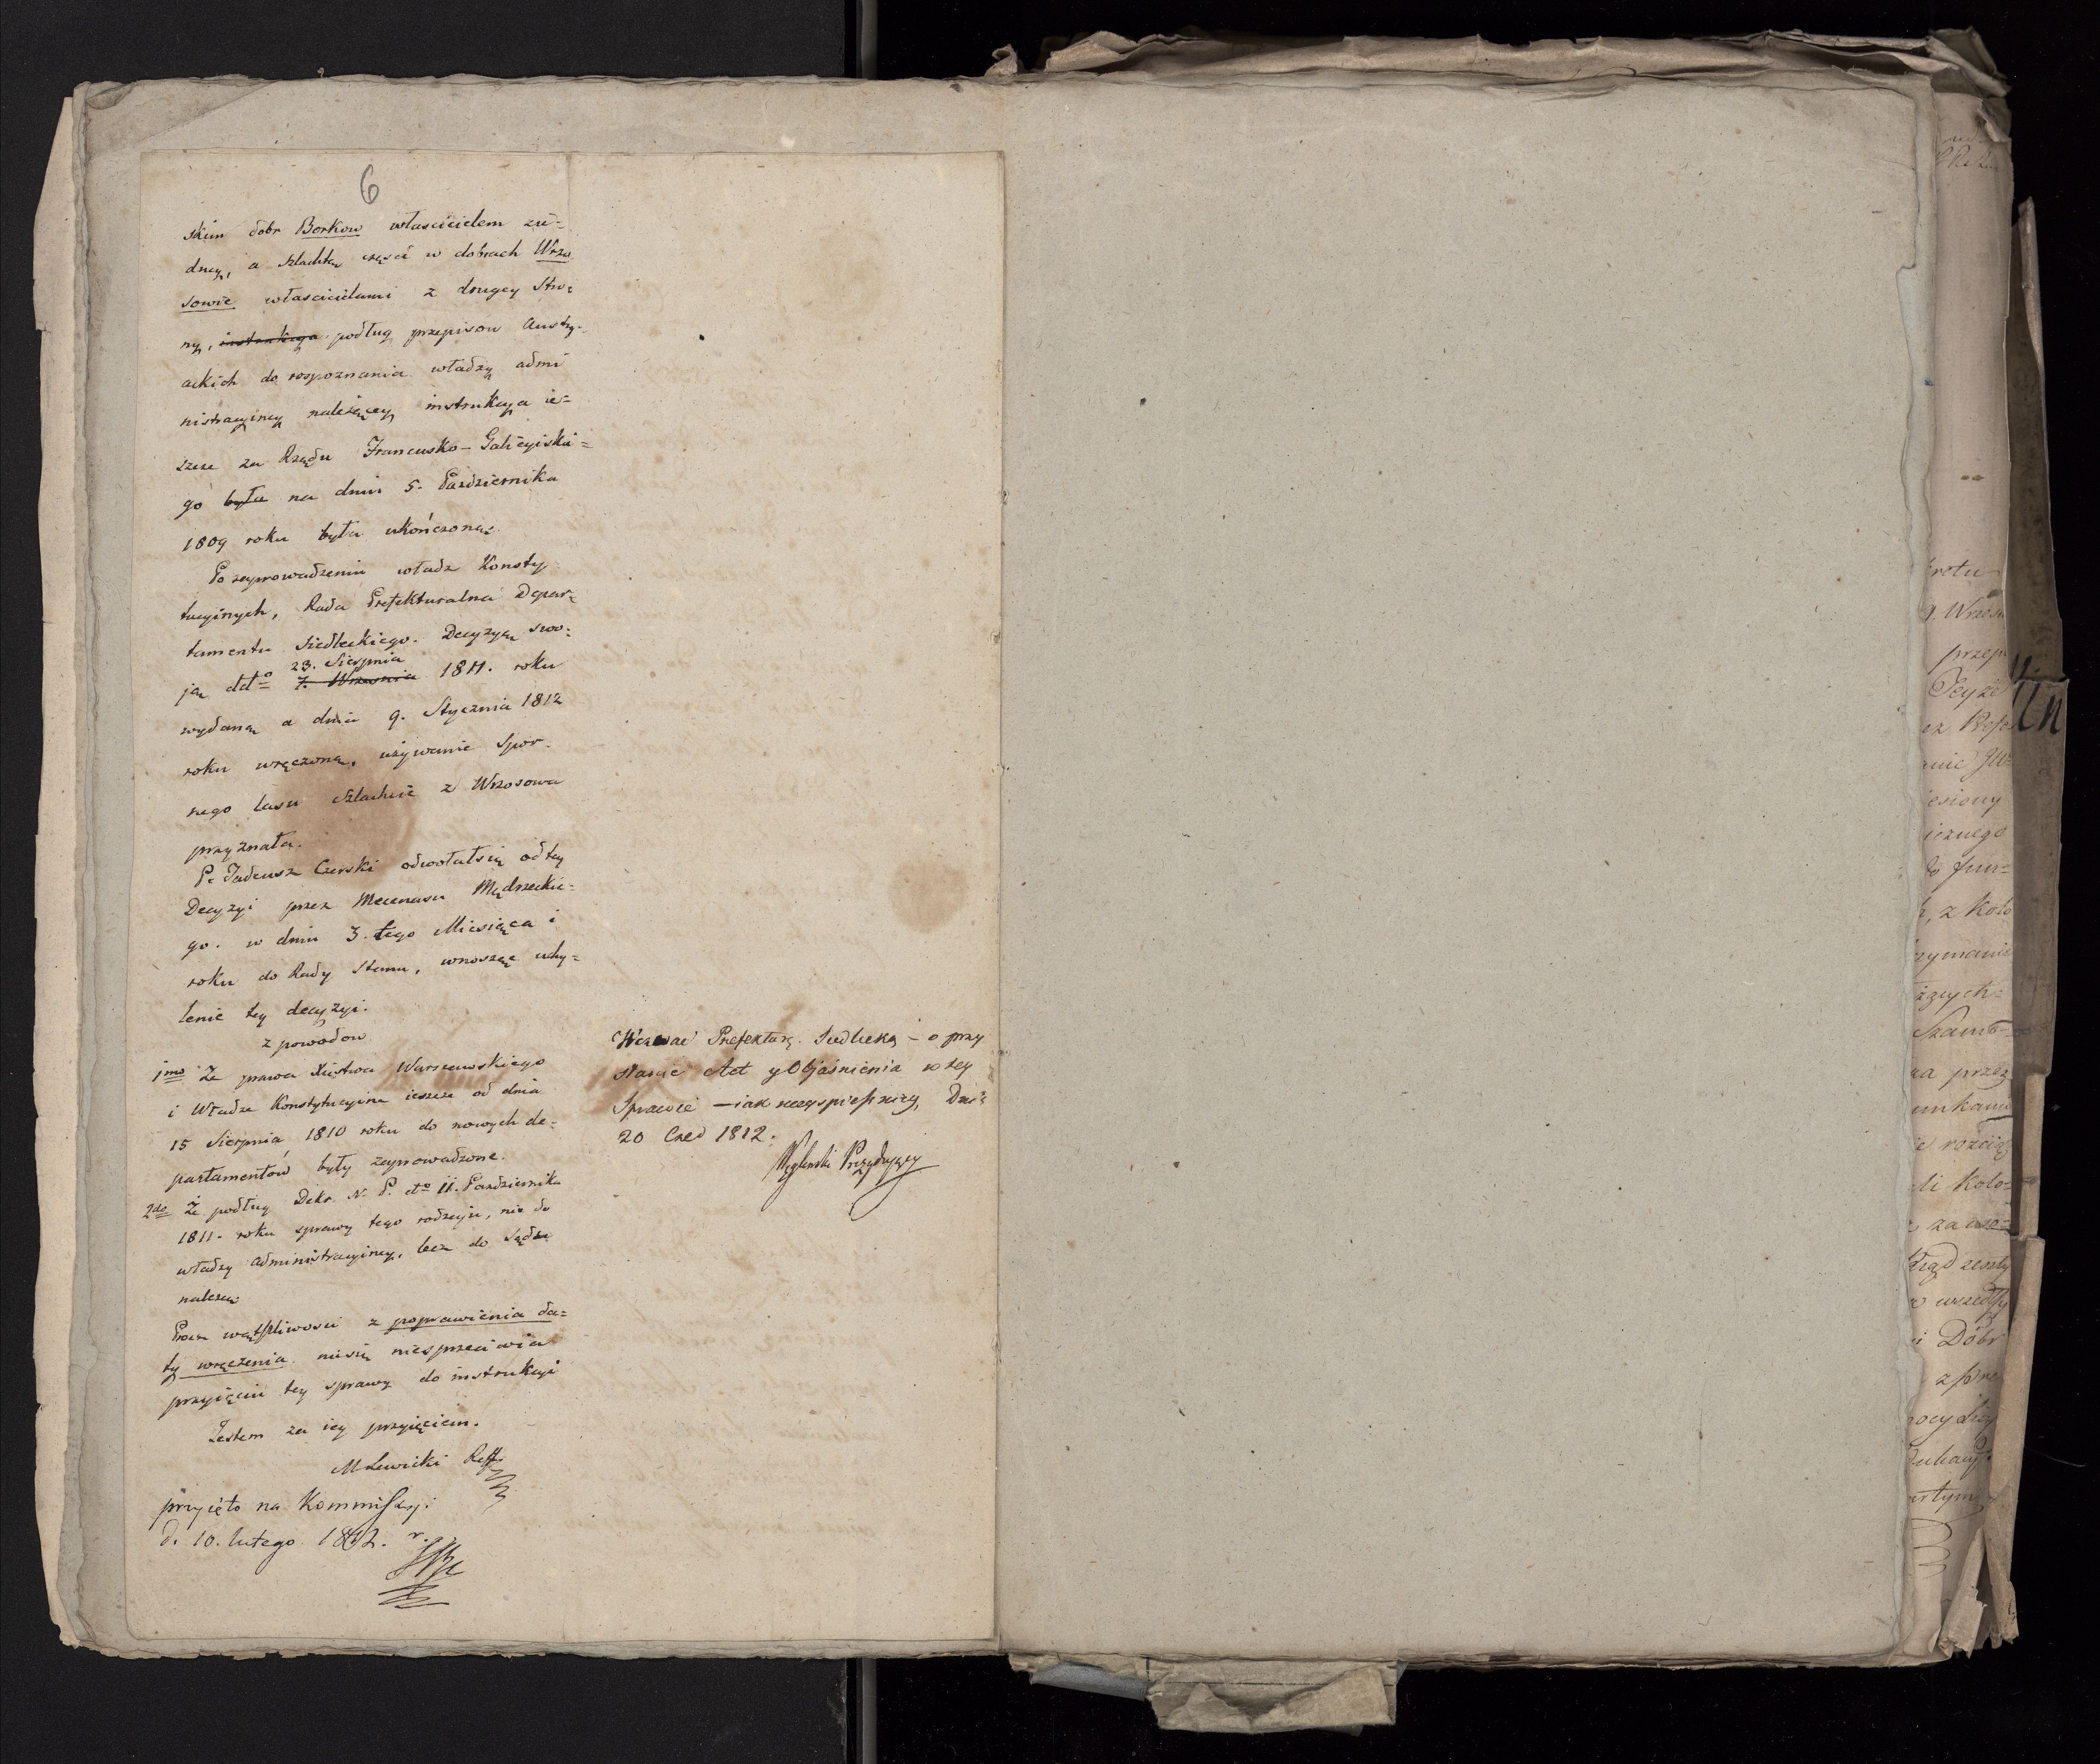 6
skim dobr Borkow włascicielem ze=
dney, a szlachtą częsci w dobrach Wrzo
sowie własciciclami z drugey Stro=
ny, instrukcya podług przepisow Austry-
ackich do rozpoznania władzy admi
nistracyiney należącey instrukcya ie=
szcze za Rządu Francusko-Galicyiskie=
go była na dniu 5. Października
1809 roku była ukończona.
Po zaprowadzeniu władz Konsty
tucyinych, Rada Prefekturalna Depar=
tamentu Siedleckiego. Decyzyą swo=
23. Sierpnia
ją ddto 7. Września 1811. roku
wydaną a dnia 9. Stycznia 1812
roku wręczoną, używanie spor-
nego lasu Szlachcie z Wrzosowa
przyznała.
P. Tadeusz Czerski odwołałsię od tey
Decyzyi przez Mecenasa Mędrzeckie=
go. w dniu 3. tego Miesiąca i
roku do Rady Stanu, wnosząc uchy=
lenie tey decyzyi.
z powodow
1mo Że prawa Xięstwa Warszawskiego
i Władze Konstytucyine ieszcze od dnia
15 Sierpnia 1810 roku do nowych de=
partamentów były zaprowadzone.
2do Że podług Dekr. N. P. dto 11. Października
1811. roku sprawy tego rodzaju, nie do
władzy administracyiney, lecz do Sądu
należą
Procz wątpliwosci z poprawienia da=
ty wręczenia niesię niesprzeciwia
przyięciu tey sprawy do instrukcyi
Jestem za iey przyięciem.
M Lewicki Reff
przyięto na Kommissyi
d. 10. lutego 1812. r.
Wezwać Prefekturę Siedlecką – o przy
słanie Act y Objaśnienia w tey
Sprawie – iak nayspieszniey, Dnia
20 Czer 1812.
Węglenski Prezyduiący